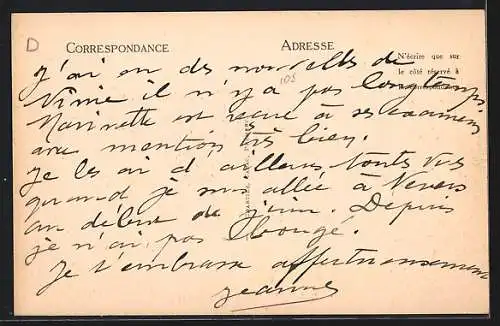 D
CORRESPONDANCE
ADRESSE
N'écrire que sur
le côté réservé à
J'ai eu des nouvelles de
Ninie il n'y a pas longtemps
105
Marinette est reçue à ses examens
avec mention très bien.
Je les ai d'ailleurs toutes vues
quand je suis allée à Nevers
au début de juin. Depuis
je n'ai pas bougé.
Je t'embrasse affectueusement
Jeanne